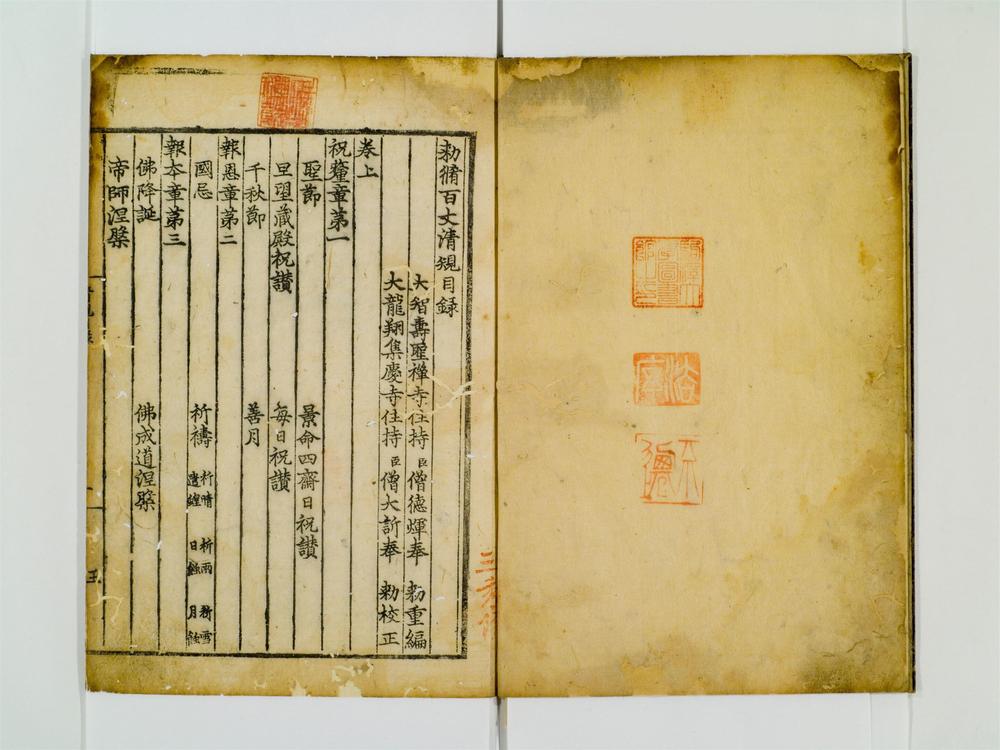 勑脩百丈清規目録
大智壽聖禪寺住持 臣 僧德煇奉 勑重編
大龍翔集慶寺住持 臣 僧大訢奉 勑校正
卷上
祝釐章第一
聖節 景命四齋日祝讃
旦望藏殿祝讃 每日祝讃
千秋節 善月
報恩章第二
國忌 祈禱 祈晴 祈雨 祈雪 遣蝗 日蝕 月蝕
報本章第三
佛降誕 佛成道涅槃
帝師涅槃